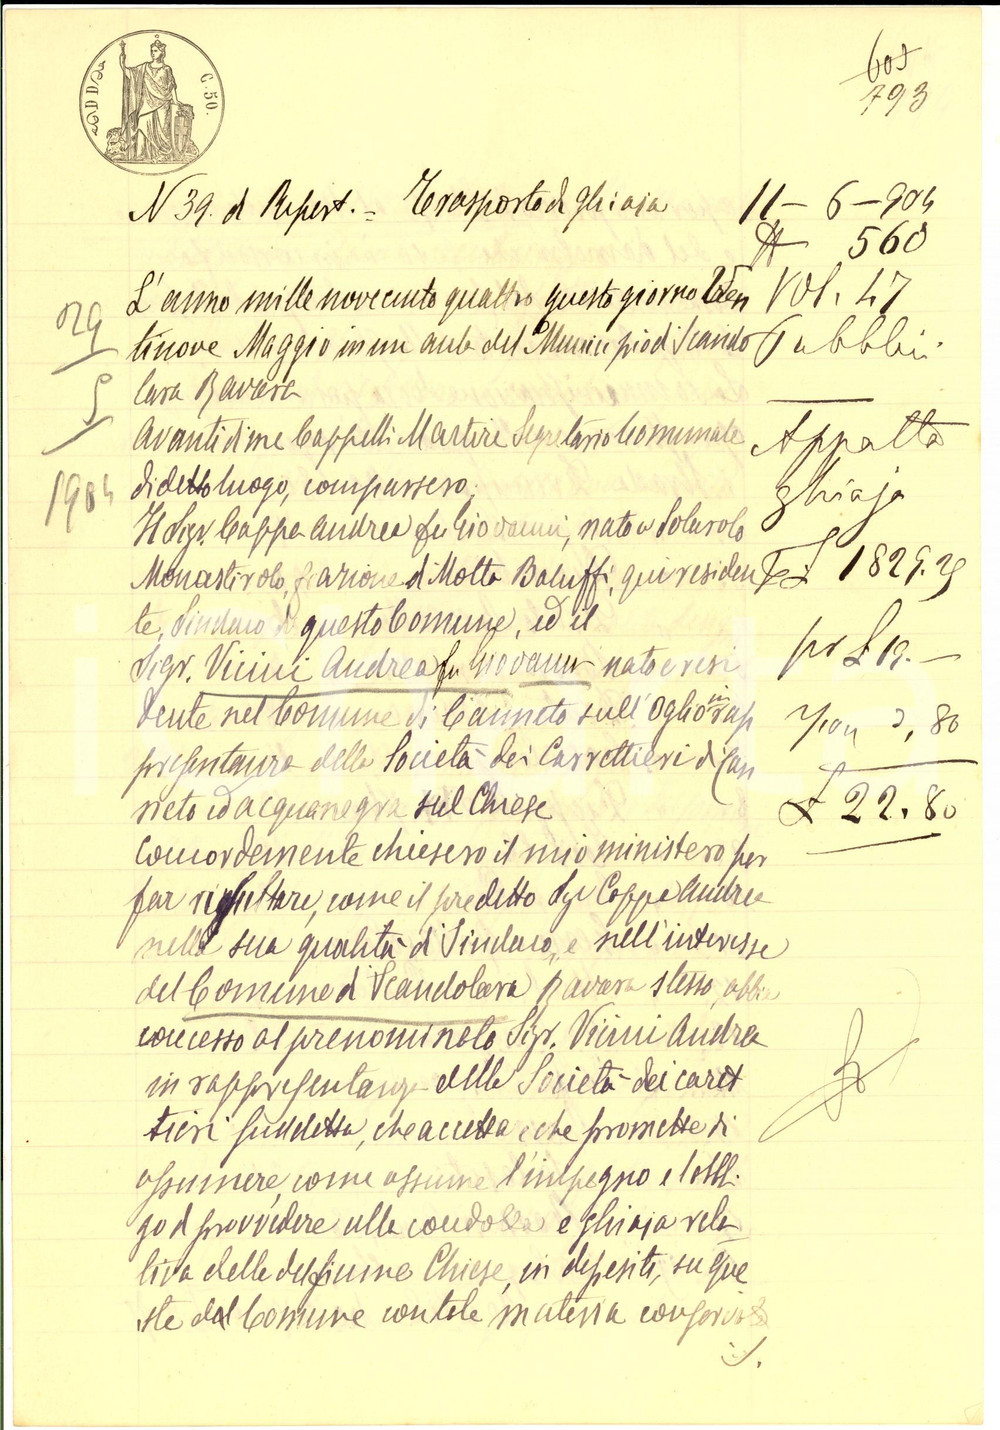 C. 50.
793
N 39. d Repert. = Trasporto di ghiaja
L'anno mille novecento quattro questo giorno Ven
tinove Maggio in un aula del Municipio di Scando
lara Ravara
Avanti di me Cappelli Martire Segretario Comunale
di detto luogo, comparsero:
Il Sigr. Coppa Andrea fu Giovanni, nato a Solarolo
Monasterolo, frazione di Motta Baluffi, qui residen
te, Sindaco di questo Comune, ed il
Sigr. Vicini Andrea fu Giovanni nato e resi
dente nel Comune di Canneto sull'Oglio in rap
presentanza della Società dei Carrettieri di Can
neto ed acquanegra sul Chiese
Concordemente chiesero il mio ministero per
far risultare, come il predetto Sigr Coppa Andrea
nella sua qualità di Sindaco, e nell'interesse
del Comune di Scandolara Ravara stesso, abbia
concesso al prenominato Sigr. Vicini Andrea
in rappresentanza della Società dei caret
tieri suddetta, che accetta e che promette di
assumere, come assume l'impegno e l'obbli
go di provvedere alla condotta e ghiaja rela
tiva delle del fiume Chiese, in depositi, su que
ste dal Comune con tale materia
29
5
1904
11 - 6 - 904
# 560
Vol. 47
Pubblici
Appalto
ghiaja
£ 1825.25
pr £ 19. —
2,80
£ 22.80